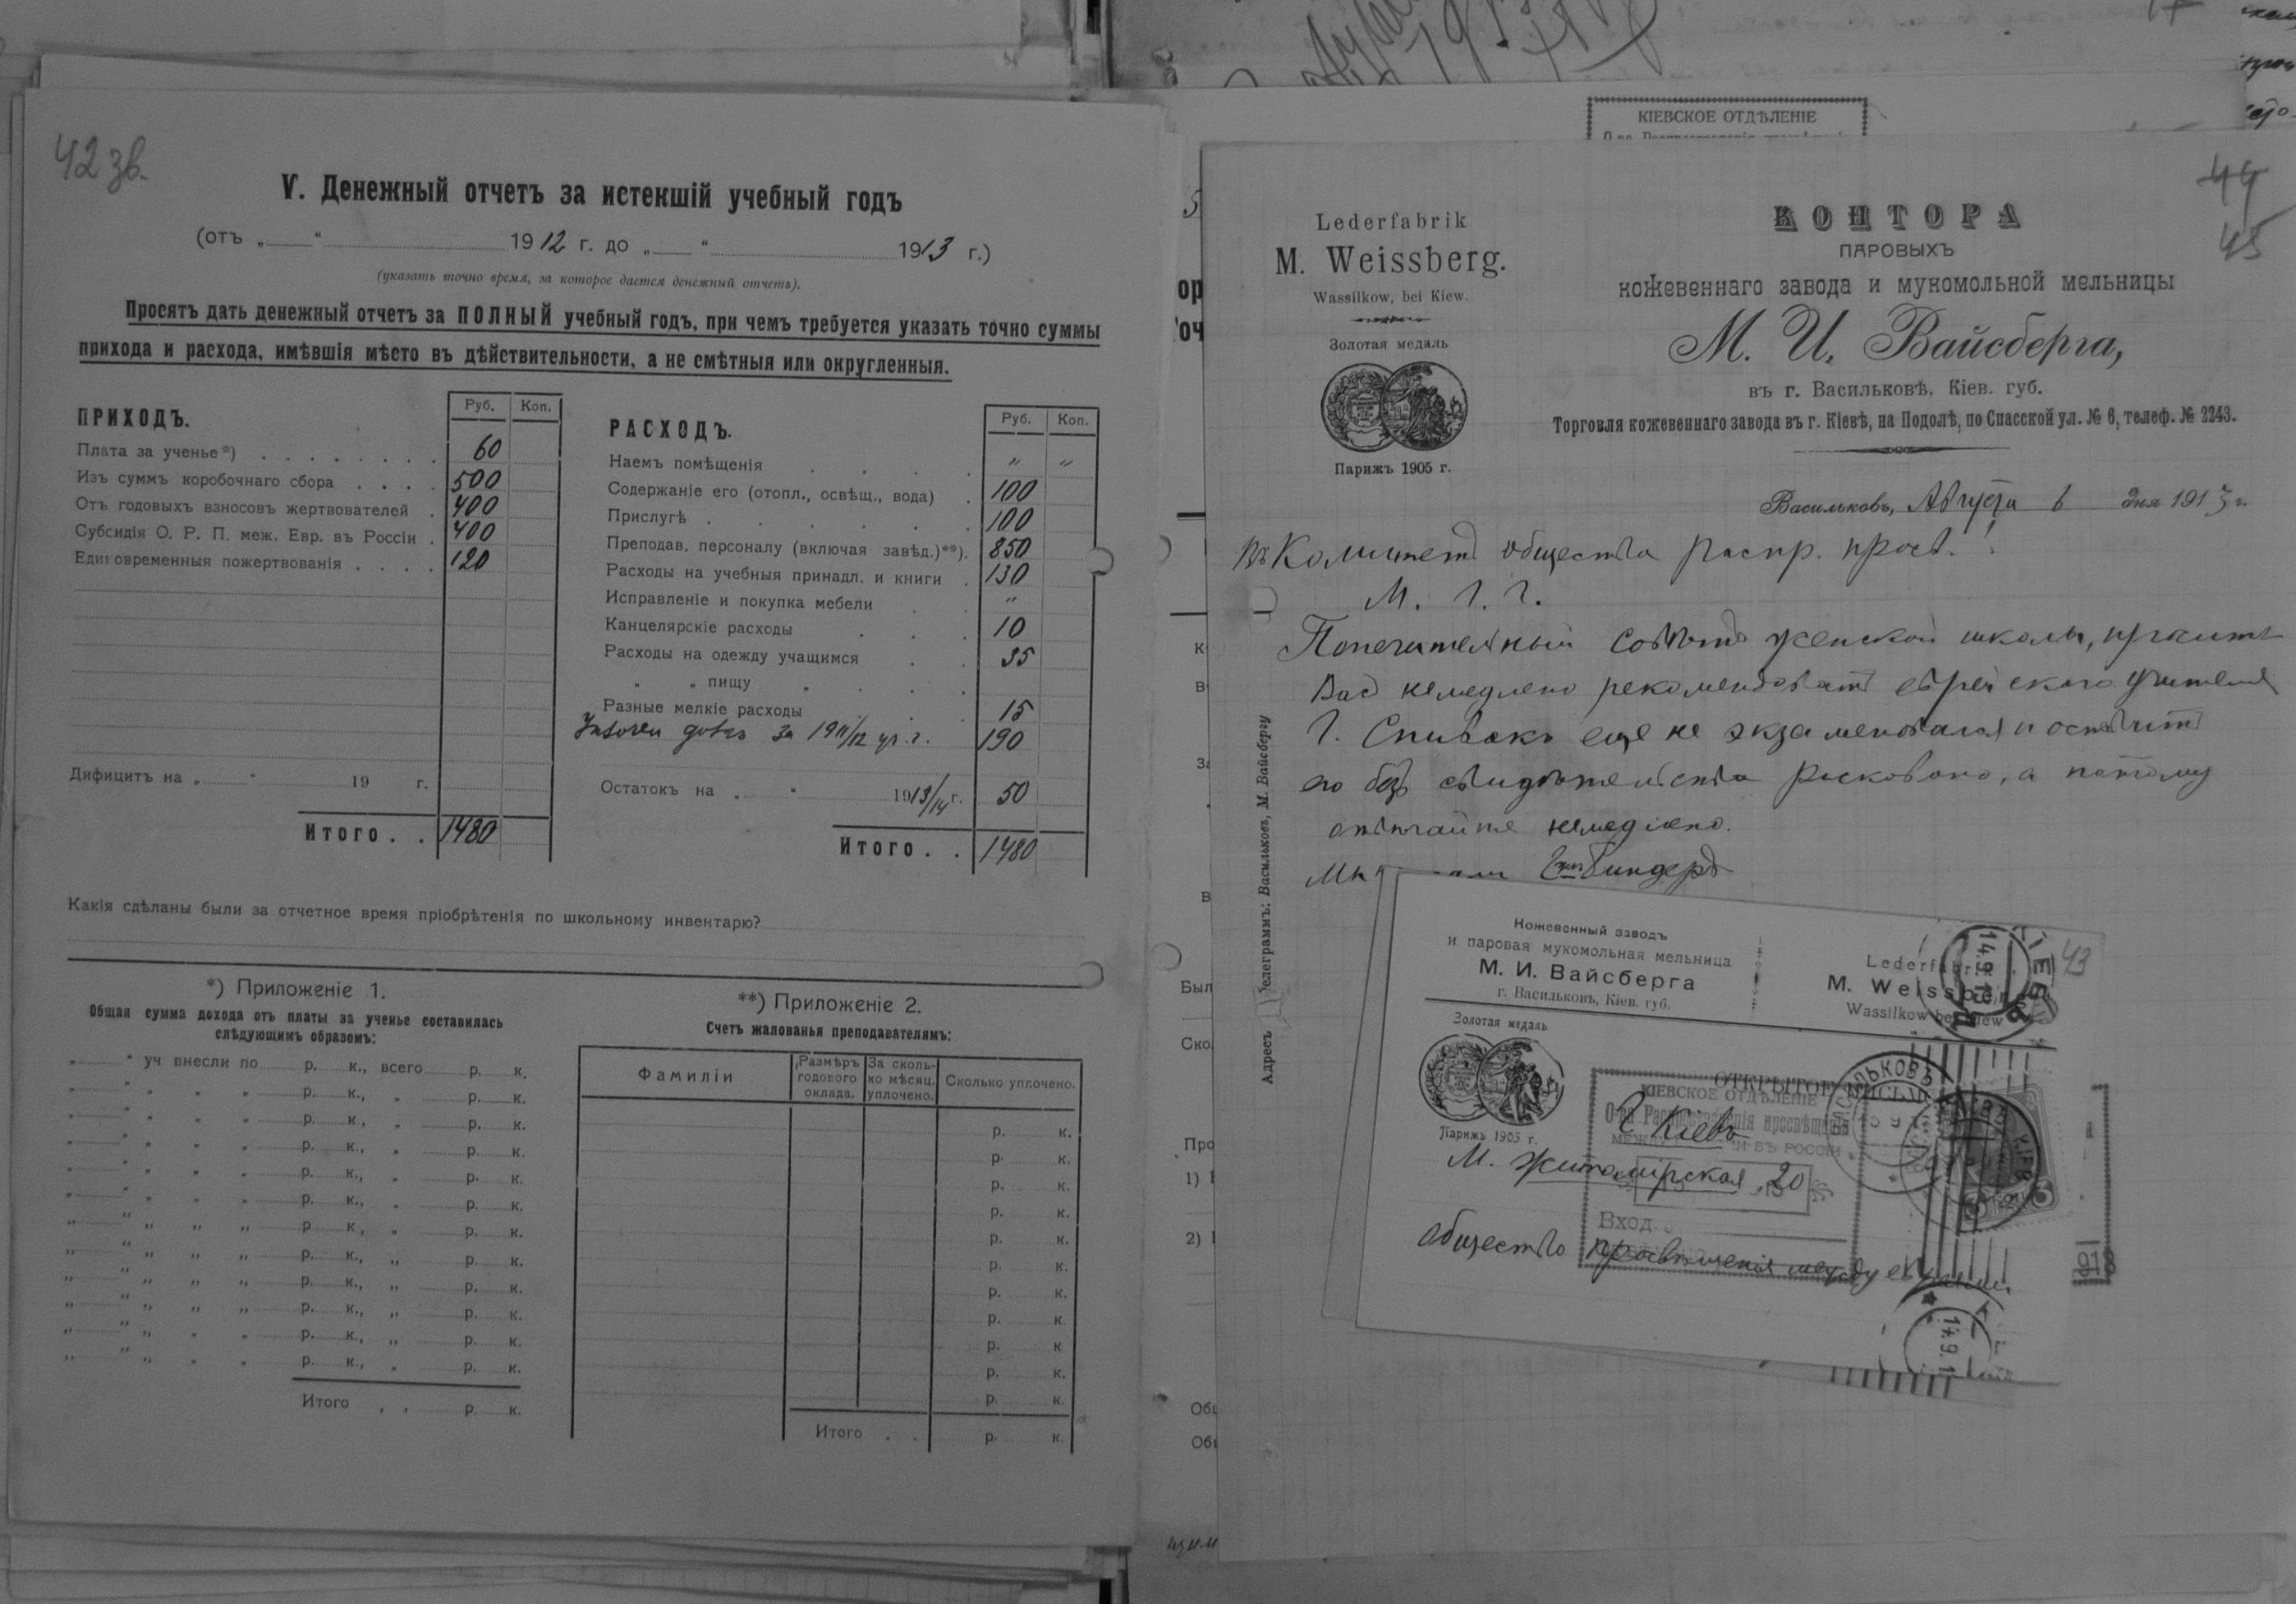 42 зв.
V. Денежный отчетъ за истекшій учебный годъ
(отъ „ “ 1912 г. до „ “ 1913 г.)
(указать точно время, за которое дается денежный отчетъ).
Просятъ дать денежный отчетъ за ПОЛНЫЙ учебный годъ, при чемъ требуется указать точно суммы
прихода и расхода, имѣвшія мѣсто въ дѣйствительности, а не смѣтныя или округленныя.
ПРИХОДЪ. Руб. Коп.
Плата за ученье*) . . . . . . . . 60
Изъ суммъ коробочнаго сбора . . . . 500
Отъ годовыхъ взносовъ жертвователей . 400
Субсидія О. Р. П. меж. Евр. въ Россіи . 400
Единовременныя пожертвованія . . . . 120
Дифицитъ на „ “ 19 г.
Итого . . 1480
РАСХОДЪ. Руб. Коп.
Наемъ помѣщенія . . . . „ „
Содержаніе его (отопл., освѣщ., вода) . 100
Прислугѣ . . . . . . 100
Преподав. персоналу (включая завѣд.)**). 850
Расходы на учебныя принадл. и книги . 130
Исправленіе и покупка мебели . . „
Канцелярскіе расходы . . . 10
Расходы на одежду учащимся . . 35
„ „ пищу „ . . .
Разные мелкіе расходы . . 15
за 1911/12 уч. г. 190
Остатокъ на „ “ 1913/14 г. 50
Итого . . 1480
Какія сдѣланы были за отчетное время пріобрѣтенія по школьному инвентарю?
*) Приложеніе 1.
Общая сумма дохода отъ платы за ученье составилась
слѣдующимъ образомъ:
„ “ уч внесли по р. к., всего р. к.
„ “ „ „ „ р. к., „ р. к.
„ “ „ „ „ р. к., „ р. к.
„ “ „ „ „ р. к., „ р. к.
„ “ „ „ „ р. к., „ р. к.
„ “ „ „ „ р. к., „ р. к.
„ “ „ „ „ р к, „ р. к.
„ “ „ „ „ р. к., „ р. к.
„ “ „ „ „ р. к., „ р. к.
„ “ „ „ „ р. к., „ р. к.
„ “ „ „ „ р. к., „ р. к.
„ “ „ „ „ р. к., „ р. к.
Итого . . р. к.
**) Приложеніе 2.
Счетъ жалованья преподавателямъ:
Фамиліи Размѣръ годового оклада. За сколько мѣсяц. уплочено. Сколько уплочено.
р. к.
р. к.
р. к.
р. к.
р. к.
р. к.
р. к.
р. к
р. к
р. к.
р. к.
Итого . . р. к.
КІЕВСКОЕ ОТДѢЛЕНІЕ
44
45
Lederfabrik
M. Weissberg.
Wassilkow, bei Kiew.
Золотая медаль
Парижъ 1905 г.
КОНТОРА
ПАРОВЫХЪ
кожевеннаго завода и мукомольной мельницы
М. И. Вайсберга,
въ г. Васильковѣ, Кіев. губ.
Торговля кожевеннаго завода въ г. Кіевѣ, на Подолѣ, по Спасской ул. № 6, телеф. № 2243.
Васильковъ, Августа 6 дня 1913 г.
Въ Комитетъ общества распр. просв.!
М. Г. Г.
Попечительный совѣтъ женской школы, проситъ
Васъ немедлено рекомендовать еврейскаго учителя
Г. Спивакъ еще не экзаменовался и оставить
его безъ свидѣтельства рисковано, а потому
отвѣчайте немедлено.
Биндеръ
Адресъ телеграммъ: Васильковъ, М. Вайсбергу
Кожевенный заводъ
и паровая мукомольная мельница
М. И. Вайсберга
г. Васильковъ, Кіев. губ.
Lederfabrik
M. Weissberg
Wassilkow bei Kiew
43
Золотая медаль
Парижъ 1905 г.
ОТКРЫТОЕ ПИСЬМО
КІЕВСКОЕ ОТДѢЛЕНІЕ
О-ва Распространенія просвѣщенія
ВЪ РОССІИ
Вход.
Г. Кіевъ
М. Житомірская, 20
Общество просвѣщенія между евреями
ВАСИЛЬКОВЪ
КІЕВЪ
14.9.1
918